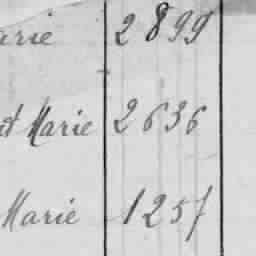 arie 2899
et Marie 2636
Marie 1257